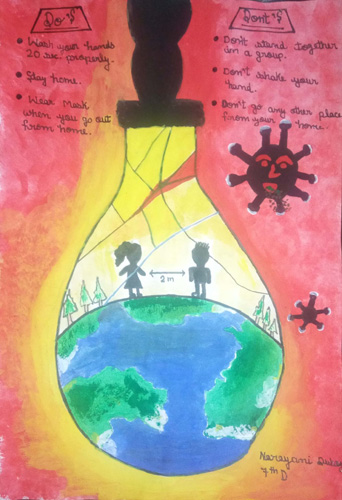 Do's
• Wash your hands
20 sec. properly.
• Stay home.
• Wear Mask
when you go out
from home.
Dont's
• Don't stand together
in a group.
• Don't shake your
hand.
• Don't go any other place
from your home.
2 m
Narayani
7th D